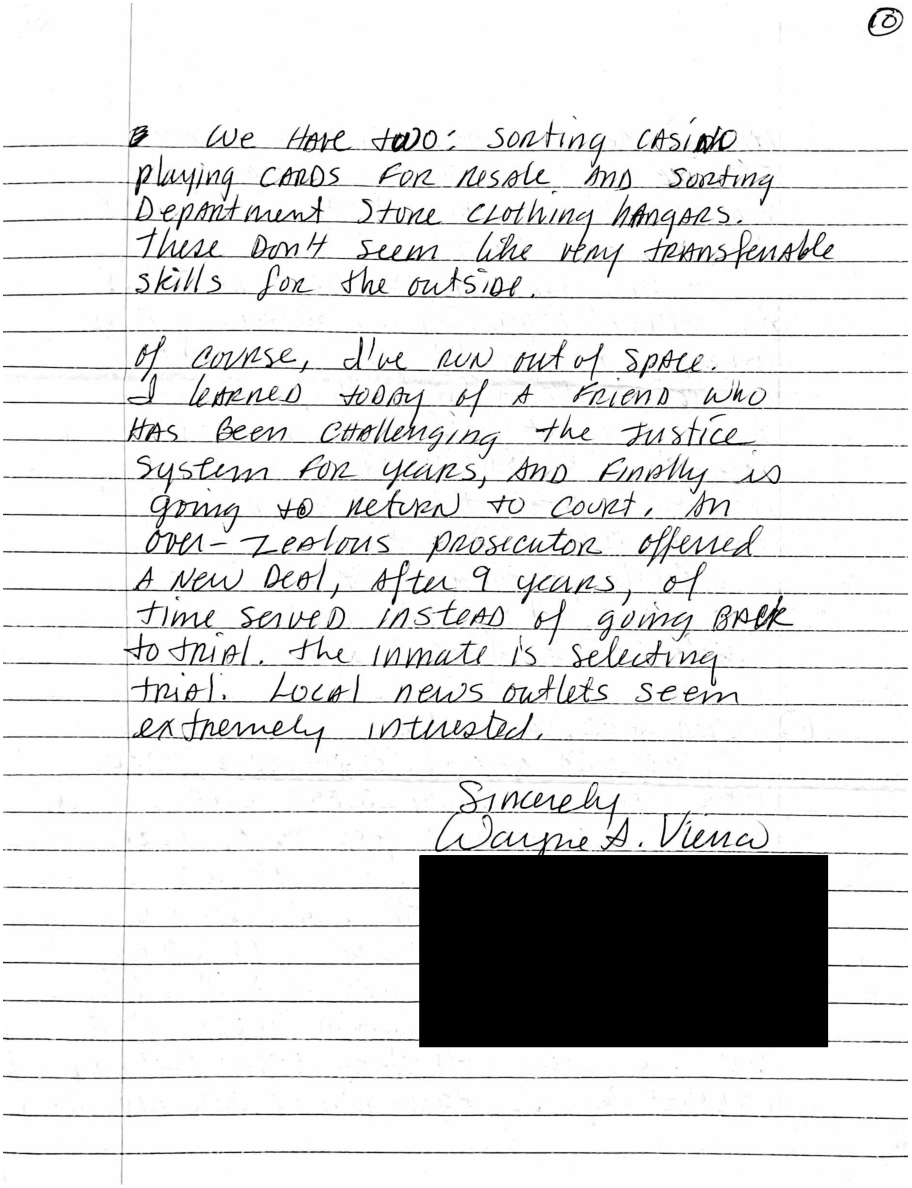 10
We Have two: Sorting CASINO
playing CARDS FOR Resale AND Sorting
Department Store Clothing hangars.
These Don't seem like very transferrable
skills for the outside.
of course, I've run out of space.
I learned today of a friend who
has been challenging the Justice
System for years, and finally is
going to return to court. An
over-zealous prosecutor offerred
a new deal, after 9 years, of
time served instead of going back
to trial. The inmate is selecting
trial. Local news outlets seem
extremely interested.
Sincerely
Wayne A.